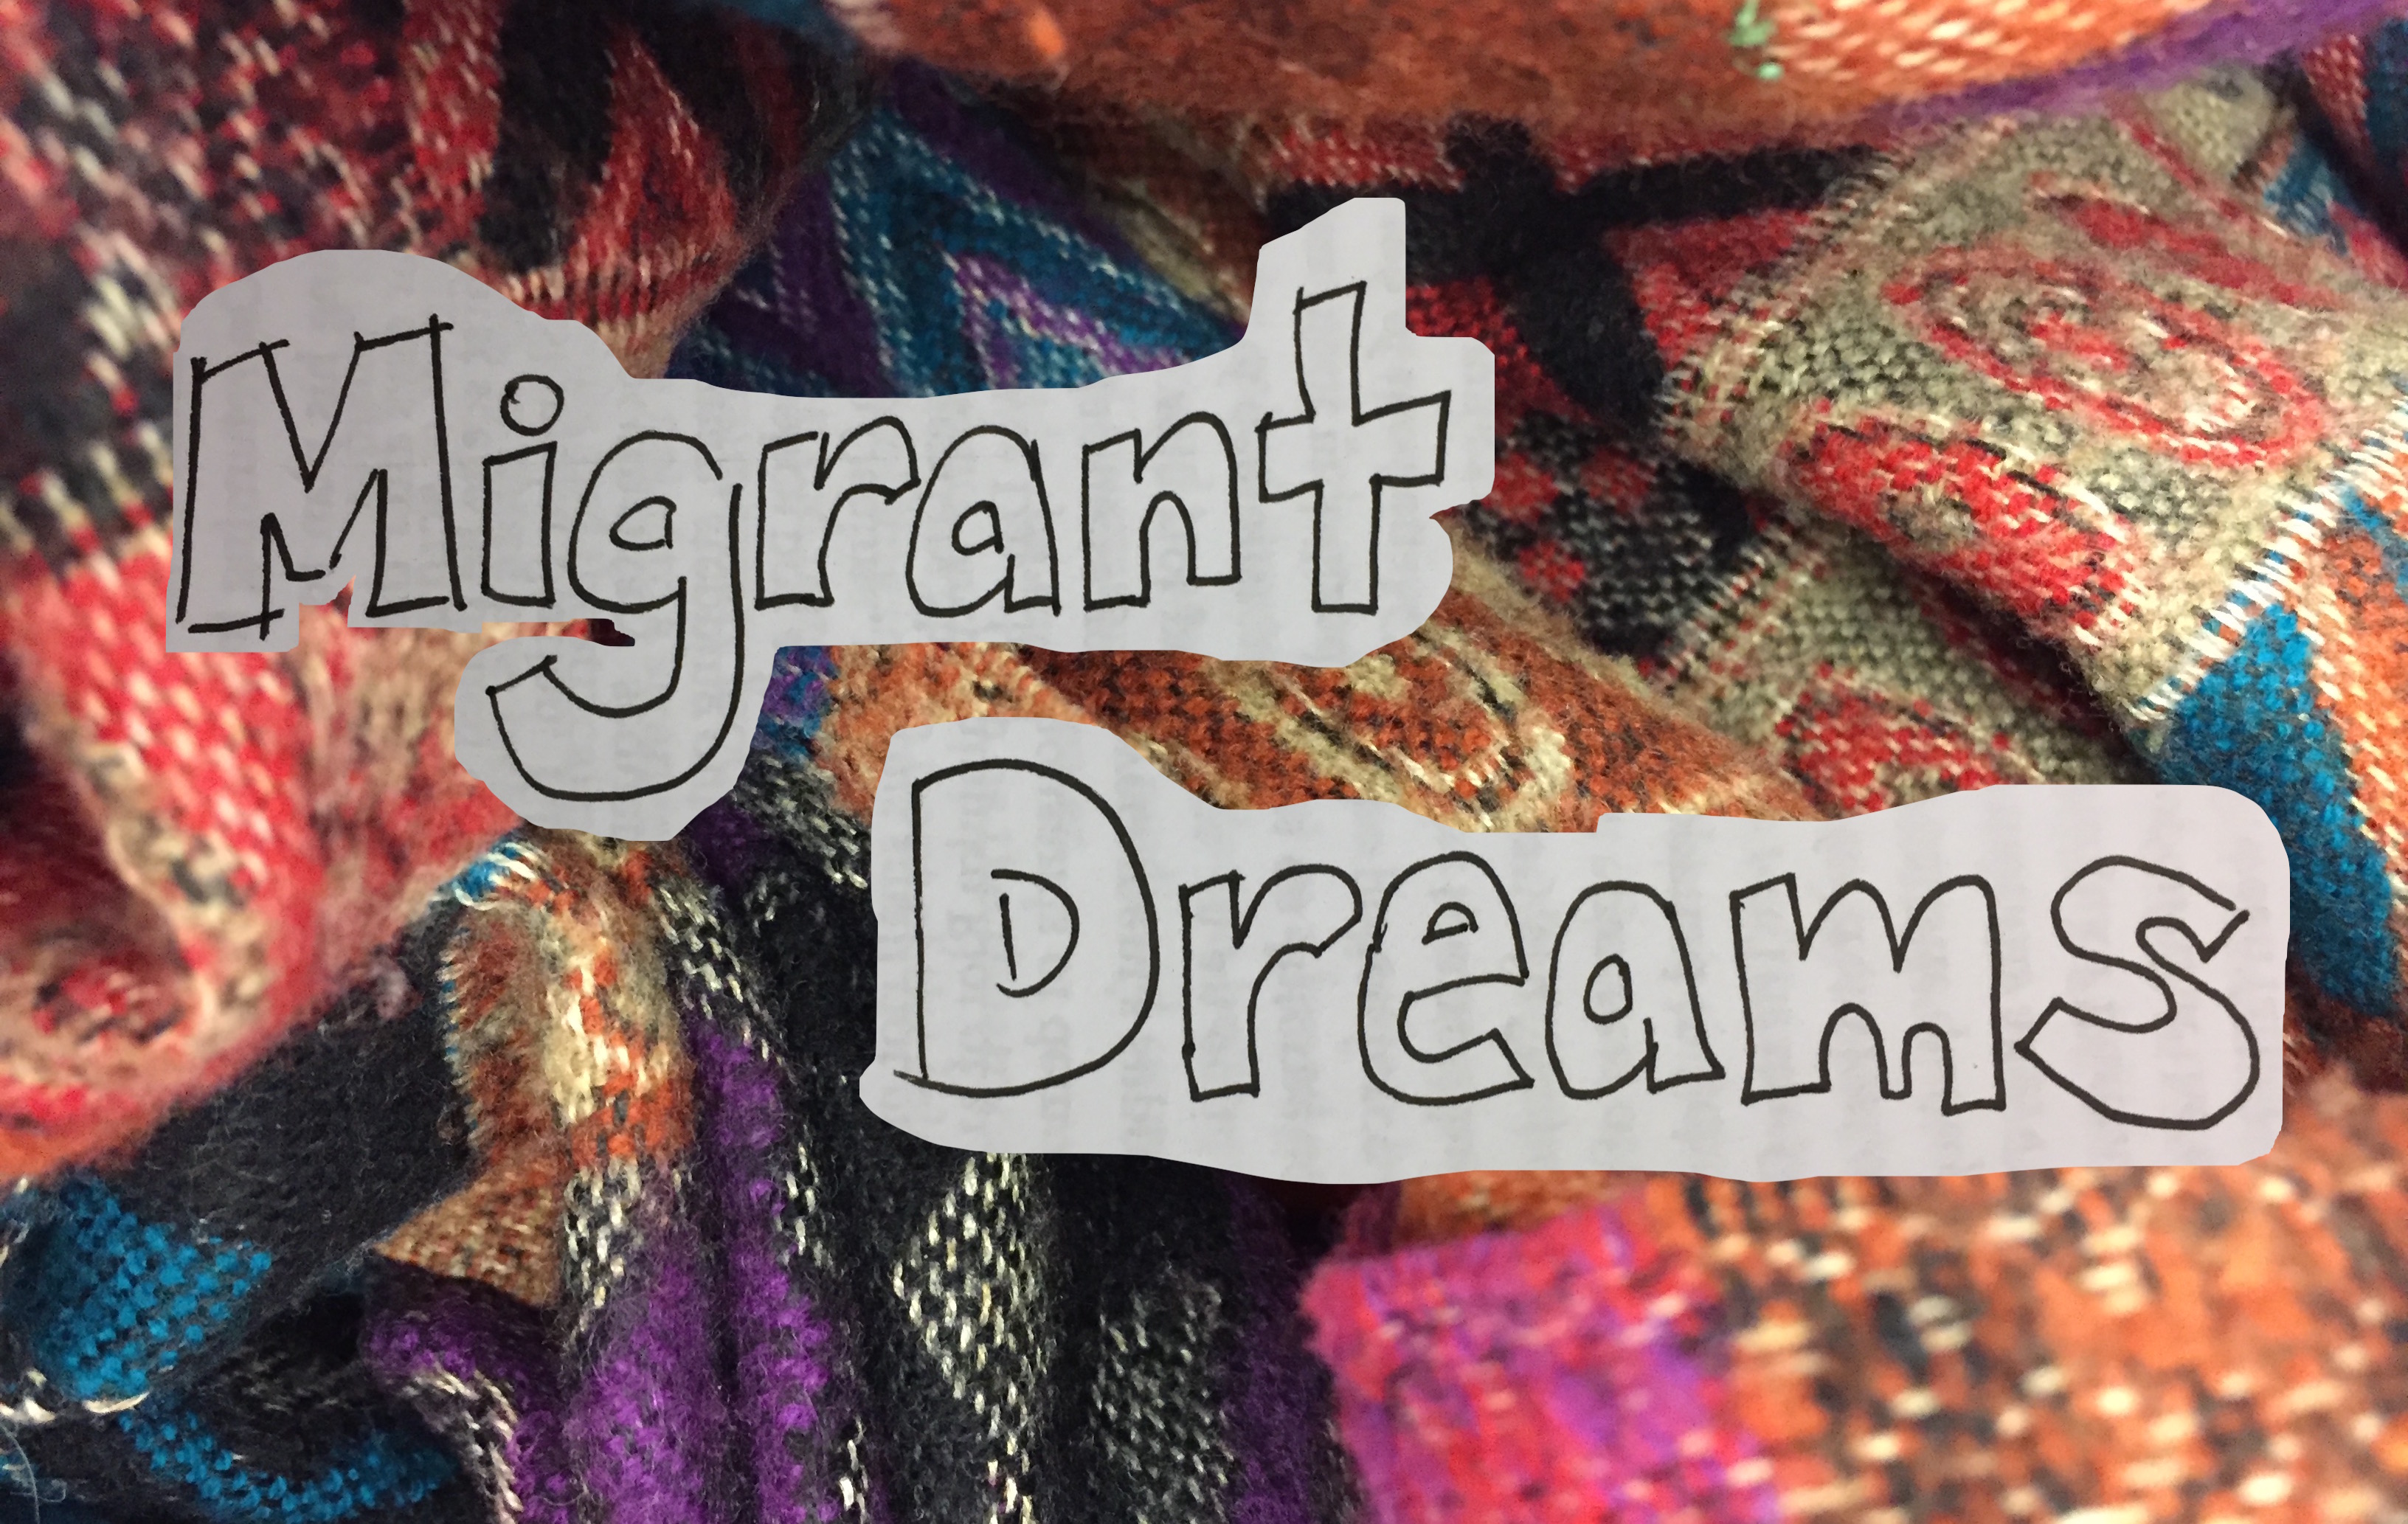 Migrant
Dreams